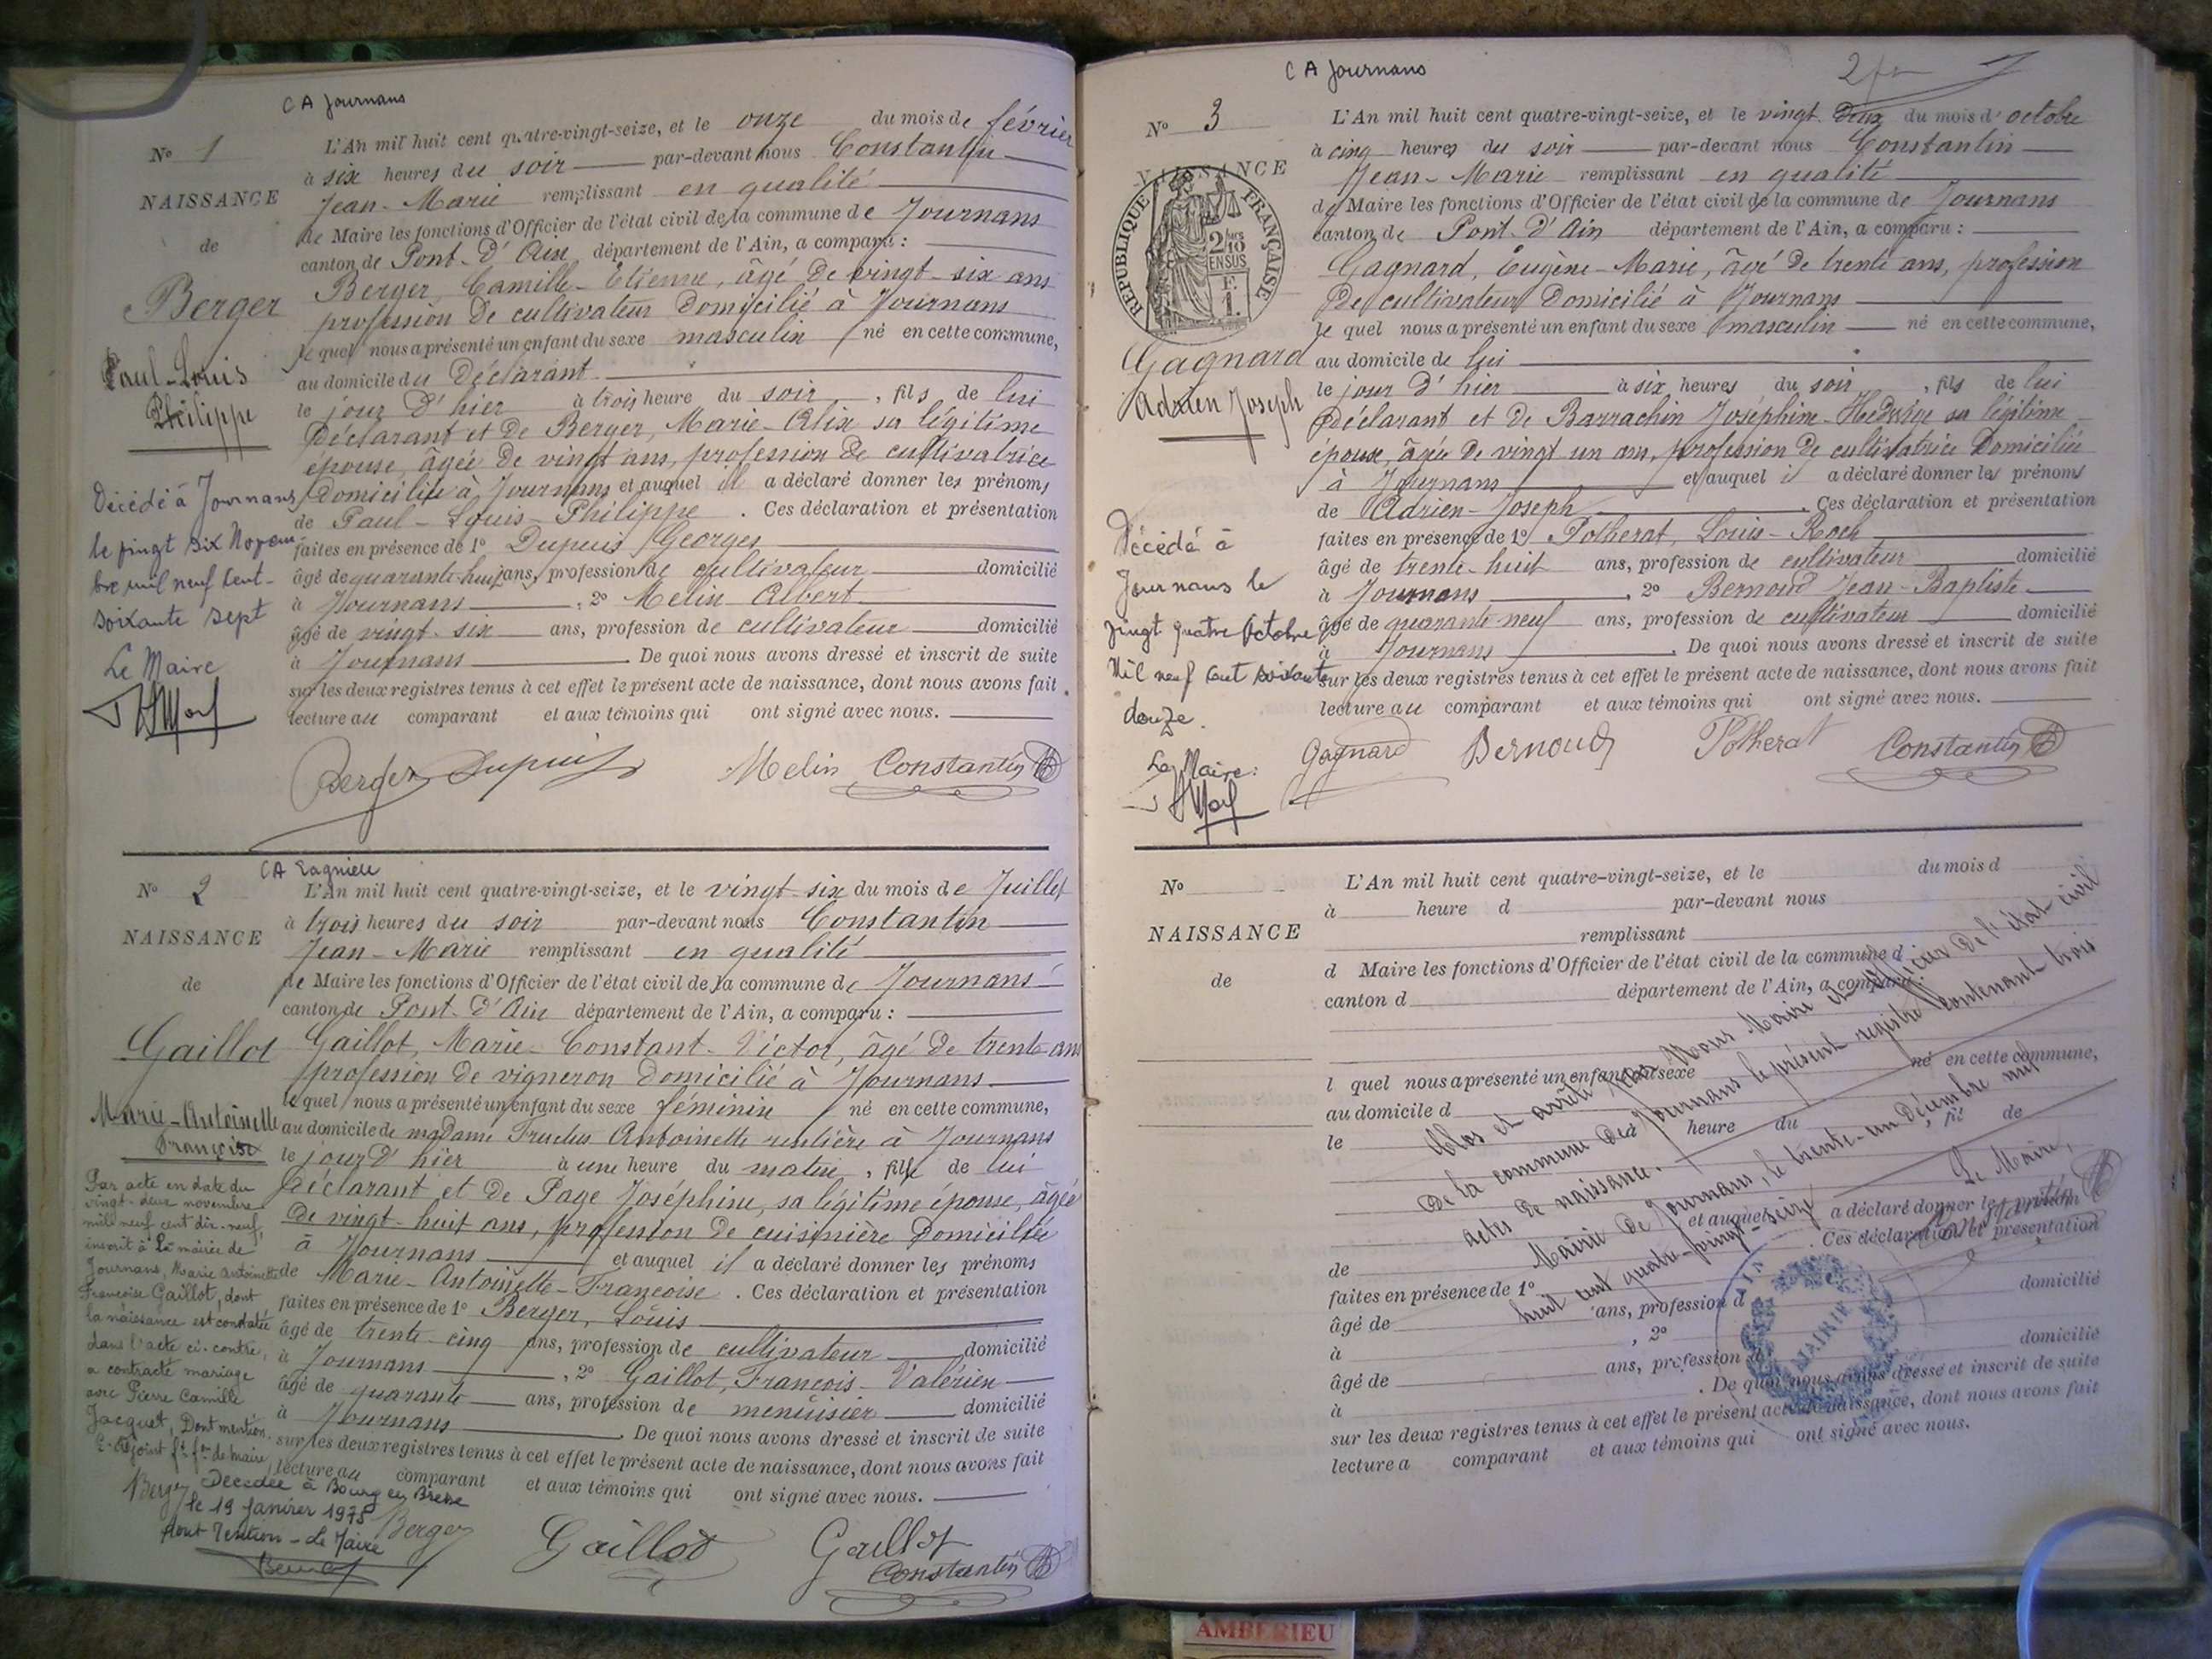 CA Journans
N° 1
NAISSANCE
de
Berger
Paul-Louis
Philippe
Décédé à Journans
le vingt six Novem
bre mil neuf cent-
soixante sept
Le Maire
L'An mil huit cent quatre-vingt-seize, et le onze du mois de février
à six heures du soir par-devant nous Constantin
Jean-Marie remplissant en qualité
de Maire les fonctions d'Officier de l'état civil de la commune de Journans
canton de Pont-d'Ain département de l'Ain, a comparu :
Berger, Camille-Etienne, âgé de vingt-six ans
profession de cultivateur domicilié à Journans
le quel nous a présenté un enfant du sexe masculin né en cette commune,
au domicile du Déclarant
le jour d'hier à trois heure du soir, fils de lui
Déclarant et de Berger, Marie-Alix sa légitime
épouse, âgée de vingt ans, profession de cultivatrice
domiciliée à Journans et auquel il a déclaré donner les prénoms
de Paul-Louis-Philippe. Ces déclaration et présentation
faites en présence de 1° Dupuis Georges
âgé de quarante-huit ans, profession de cultivateur domicilié
à Journans, 2° Melin Albert
âgé de vingt-six ans, profession de cultivateur domicilié
à Journans. De quoi nous avons dressé et inscrit de suite
sur les deux registres tenus à cet effet le présent acte de naissance, dont nous avons fait
lecture au comparant et aux témoins qui ont signé avec nous.
Berger Dupuis Melin Constantin
N° 2
NAISSANCE
de
Gaillot
Marie-Antoinette
Françoise
Par acte en date du
vingt-deux novembre
mill neuf cent dix-neuf,
inscrit à la mairie de
Journans, Marie Antoinette
Françoise Gaillot, dont
la naissance est constatée
dans l'acte ci-contre,
a contracté mariage
avec Pierre Camille
Jacquet, Dont mention.
L'Adjoint ft fon de maire,
Berger
Décédée à Bourg en Bresse
le 19 Janvier 1975
dont Mention - Le Maire
CA
L'An mil huit cent quatre-vingt-seize, et le vingt-six du mois de Juillet
à trois heures du soir par-devant nous Constantin
Jean-Marie remplissant en qualité
de Maire les fonctions d'Officier de l'état civil de la commune de Journans
canton de Pont-d'Ain département de l'Ain, a comparu :
Gaillot, Marie-Constant-Victor, âgé de trente ans
profession de vigneron domicilié à Journans
le quel nous a présenté un enfant du sexe féminin né en cette commune,
au domicile de madame Antoinette rentière à Journans
le jour d'hier à une heure du matin, fille de lui
Déclarant et de Page Joséphine, sa légitime épouse, âgée
de vingt-huit ans, profession de cuisinière domiciliée
à Journans et auquel il a déclaré donner les prénoms
de Marie-Antoinette-Françoise. Ces déclaration et présentation
faites en présence de 1° Berger, Louis
âgé de trente-cinq ans, profession de cultivateur domicilié
à Journans, 2° Gaillot, François-Valérien
âgé de quarante ans, profession de menuisier domicilié
à Journans. De quoi nous avons dressé et inscrit de suite
sur les deux registres tenus à cet effet le présent acte de naissance, dont nous avons fait
lecture au comparant et aux témoins qui ont signé avec nous.
Berger Gaillot Gaillot
Constantin
CA Journans
N° 3
NAISSANCE
RÉPUBLIQUE FRANÇAISE
2/10
EN SUS
F.
1.
Gagnard
Adrien Joseph
Décédé à
Journans le
vingt quatre Octobre
Mil neuf cent soixante
douze.
Le Maire:
L'An mil huit cent quatre-vingt-seize, et le vingt-deux du mois d'octobre
à cinq heures du soir par-devant nous Constantin
Jean-Marie remplissant en qualité
de Maire les fonctions d'Officier de l'état civil de la commune de Journans
canton de Pont d'Ain département de l'Ain, a comparu :
Gagnard, Eugène-Marie, âgé de trente ans, profession
de cultivateur domicilié à Journans
le quel nous a présenté un enfant du sexe masculin né en cette commune,
au domicile de lui
le jour d'hier à six heures du soir, fils de lui
Déclarant et de Barrachin Joséphine-Hedwige sa légitime
épouse, âgée de vingt un ans, profession de cultivatrice domiciliée
à Journans et auquel il a déclaré donner les prénoms
de Adrien-Joseph. Ces déclaration et présentation
faites en présence de 1° Potherat, Louis-Roch
âgé de trente-huit ans, profession de cultivateur domicilié
à Journans, 2° Bernoud Jean-Baptiste
âgé de quarante-neuf ans, profession de cultivateur domicilié
à Journans. De quoi nous avons dressé et inscrit de suite
sur les deux registres tenus à cet effet le présent acte de naissance, dont nous avons fait
lecture au comparant et aux témoins qui ont signé avec nous.
Gagnard Bernoud Potherat Constantin
N°
NAISSANCE
de
L'An mil huit cent quatre-vingt-seize, et le du mois d
à heure d par-devant nous
remplissant
d Maire les fonctions d'Officier de l'état civil de la commune d
canton d département de l'Ain, a comparu :
l quel nous a présenté un enfant du sexe né en cette commune,
au domicile d
le heure du, fil de
et auquel a déclaré donner les prénom
de Ces déclaration et présentation
faites en présence de 1°
âgé de ans, profession d domicilié
à, 2°
âgé de ans, profession d domicilié
à. De quoi nous avons dressé et inscrit de suite
sur les deux registres tenus à cet effet le présent acte de naissance, dont nous avons fait
lecture a comparant et aux témoins qui ont signé avec nous.
Clos et arrêté par Nous Maire et officier de l'état civil
de la commune de Journans le présent registre contenant trois
actes de naissance.
Mairie de Journans, le trente-un décembre mil
huit cent quatre-vingt-seize
Le Maire,
Constantin
MAIRIE
AIN
AMBERIEU